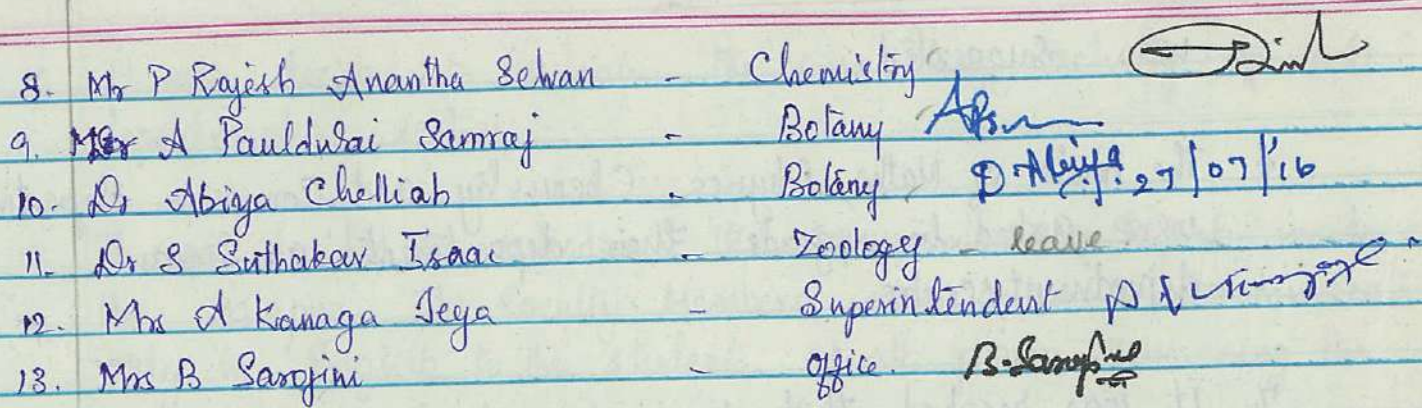 8. Mr P Rajesh Anantha Selvan - Chemistry
9. Mr A Pauldurai Samraj - Botany
10. Dr Abiya Chelliah - Botany D. Abiya 27/07/'16
11. Dr S Suthakar Isaac - Zoology - leave
12. Mrs A Kanaga Jeya - Superintendent
13. Mrs B Sarojini - office. B. Sarojini